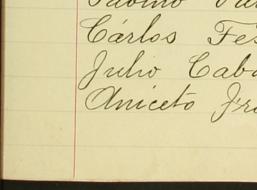 Cárlos Fes
Julio Caba
Aniceto Fra